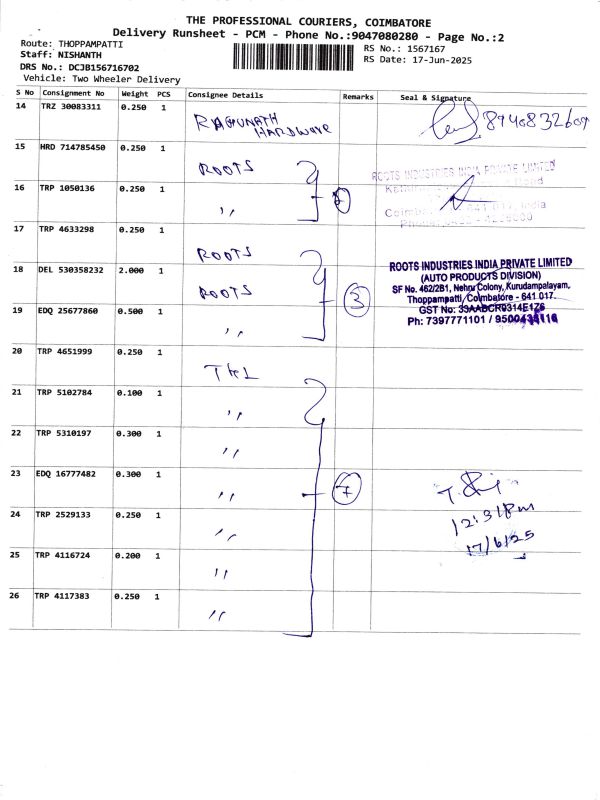 THE PROFESSIONAL COURIERS, COIMBATORE
Delivery Runsheet - PCM - Phone No.:9047080280 - Page No.:2
Route: THOPPAMPATTI
Staff: NISHANTH
DRS No.: DCJB156716702
Vehicle: Two Wheeler Delivery
RS No.: 1567167
RS Date: 17-Jun-2025
S No Consignment No Weight PCS Consignee Details Remarks Seal & Signature
14 TRZ 30083311 0.250 1 RAGUNATH HARDWARE
15 HRD 714785450 0.250 1 ROOTS
ROOTS INDUSTRIES INDIA PRIVATE LIMITED
16 TRP 1050136 0.250 1 ,, 2
17 TRP 4633298 0.250 1 ROOTS
18 DEL 530358232 2.000 1 ROOTS 3
19 EDQ 25677860 0.500 1 ,,
ROOTS INDUSTRIES INDIA PRIVATE LIMITED
(AUTO PRODUCTS DIVISION)
SF No. 462/2B1, Nehru Colony, Kurudampalayam,
Thoppampatti, Coimbatore - 641 017.
GST No: 33AABCR0314E1Z6
Ph: 7397771101 /
20 TRP 4651999 0.250 1
21 TRP 5102784 0.100 1 ,,
22 TRP 5310197 0.300 1 ,,
23 EDQ 16777482 0.300 1 ,, 7
24 TRP 2529133 0.250 1 ,,
25 TRP 4116724 0.200 1 ,,
26 TRP 4117383 0.250 1 ,,
12:31Pm
17/6/25